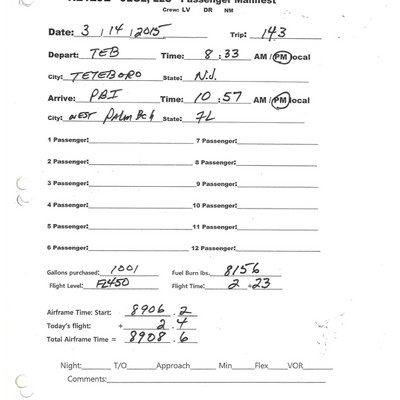 Passenger Manifest
Crew: LV DR NM
Date: 3 / 14 / 2015 Trip: 143
Depart: TEB Time: 8 : 33 AM / PM local
City: TETEBORO State: N.J.
Arrive: PBI Time: 10 : 57 AM / PM local
City: WEST PALM BCH State: FL
1 Passenger: 7 Passenger:
2 Passenger: 8 Passenger:
3 Passenger: 9 Passenger:
4 Passenger: 10 Passenger:
5 Passenger: 11 Passenger:
6 Passenger: 12 Passenger:
Gallons purchased: 1001 Fuel Burn lbs. 8156
Flight Level: FL450 Flight Time: 2 + 23
Airframe Time: Start: 8906 . 2
Today's flight: + 2 . 4
Total Airframe Time = 8908 . 6
Night: T/O Approach Min Flex VOR
Comments: